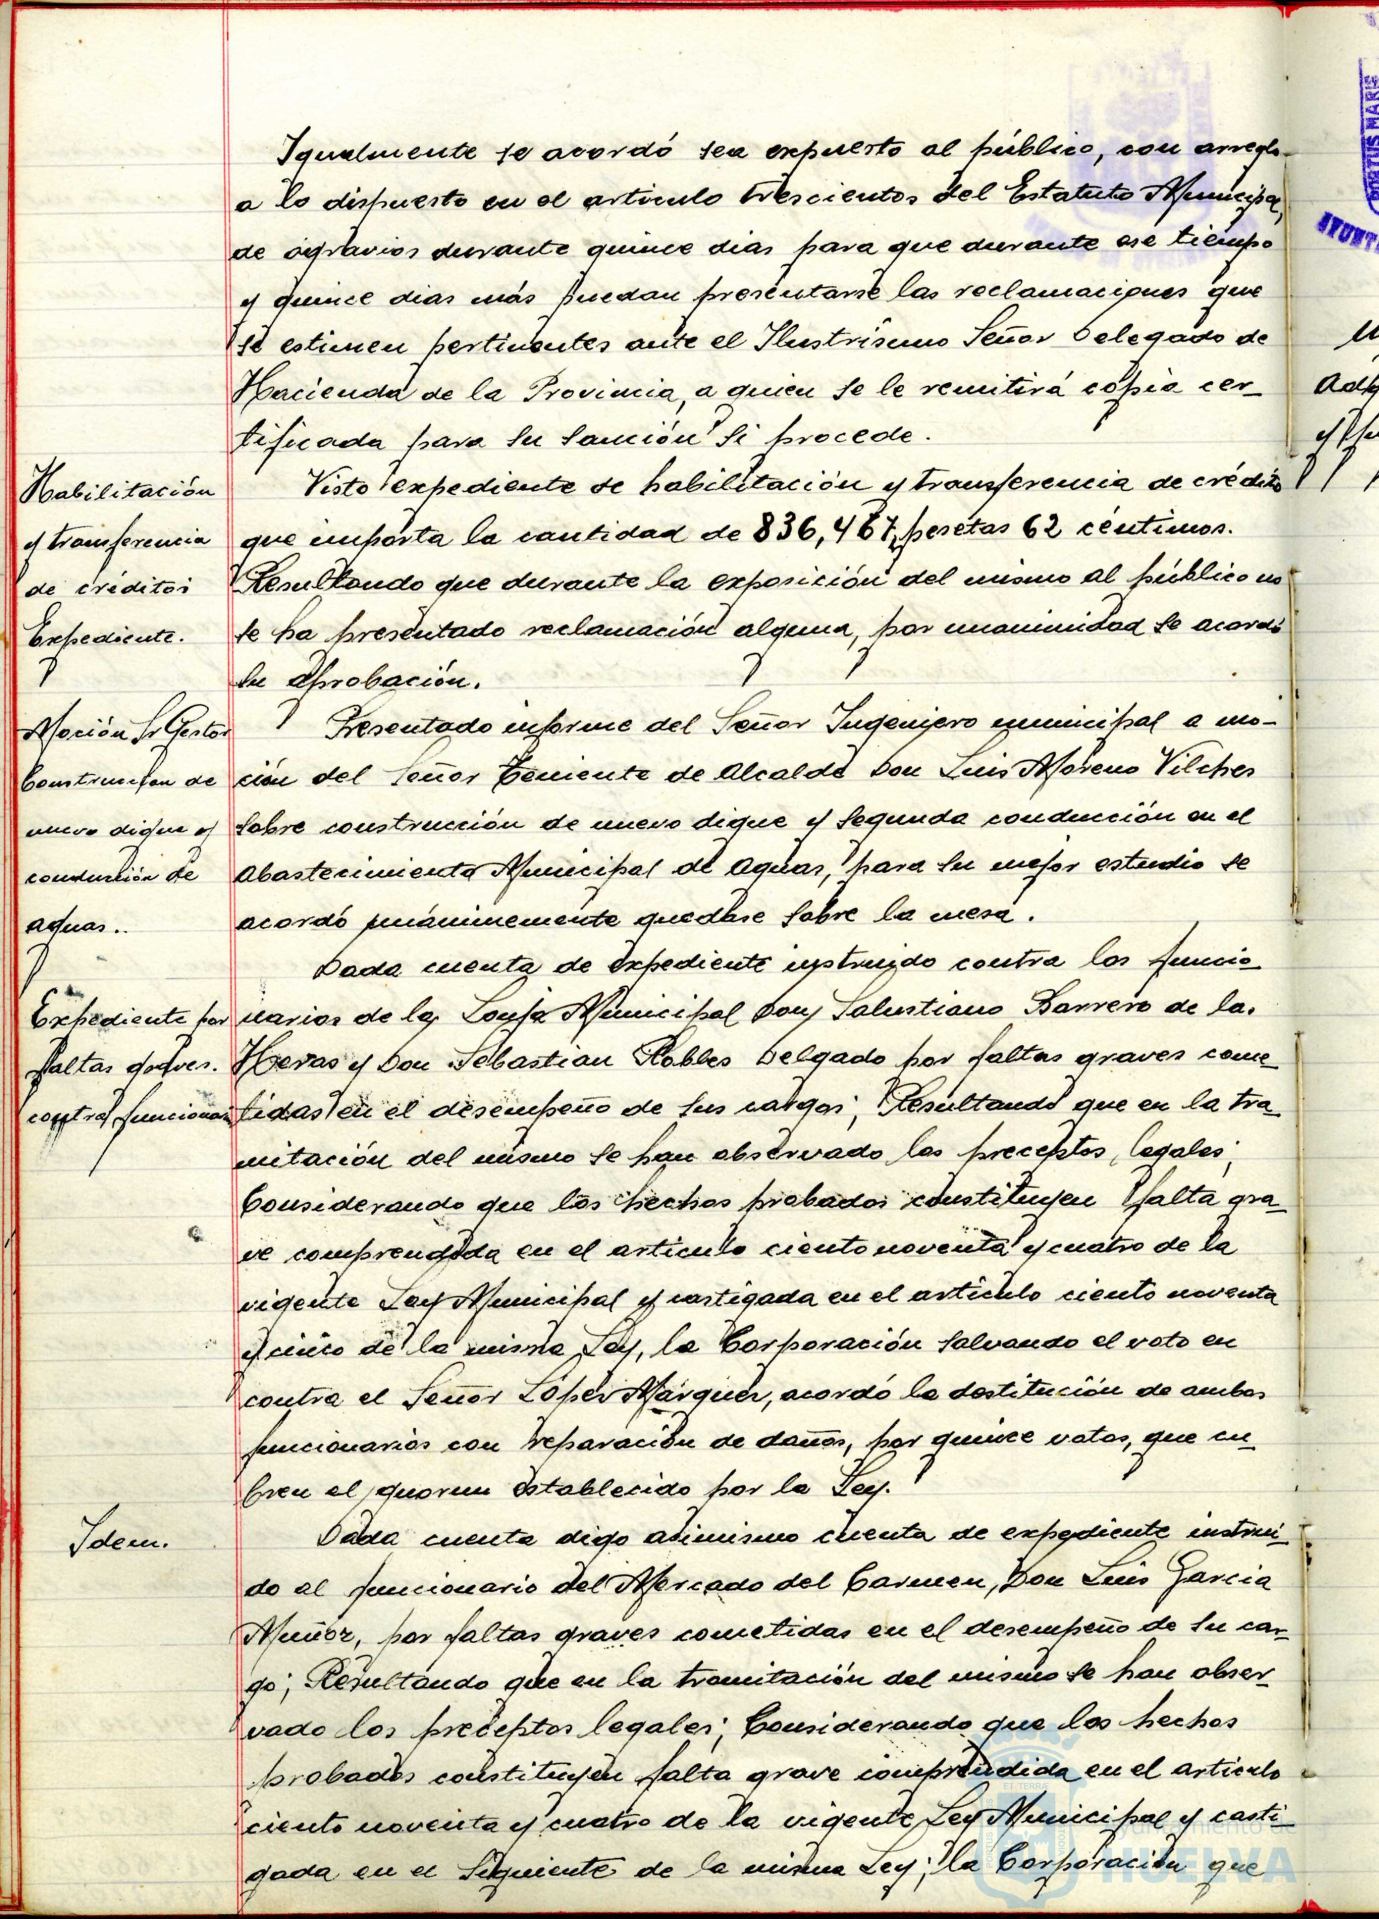 Igualmente se acordó sea expuesto al público, con arreglo
a lo dispuesto en el articulo trescientos del Estatuto Municipal,
de agravios durante quince dias para que durante ese tiempo
y quince dias más puedan presentarse las reclamaciones que
se estimen pertinentes ante el Ilustrísimo Señor Delegado de
Hacienda de la Provincia, a quien se le remitirá copia cer-
tificada para su sanción si procede.
Habilitación
y transferencia
de créditos
Expediente.
Visto expediente de habilitación y transferencia de crédito
que importa la cantidad de 836,467, pesetas 62 céntimos.
Resultando que durante la exposición del mismo al público no
se ha presentado reclamación alguna, por unanimidad se acordó
su aprobación.
Moción Sr Gestor
Construccion de
nuevo dique y
conducción de
aguas..
Presentado informe del Señor Ingeniero municipal a mo-
ción del Señor Teniente de Alcalde Don Luis Moreno Vilches
sobre construcción de nuevo dique y segunda conducción en el
Abastecimiento Municipal de Aguas, para su mejor estudio se
acordó unánimemente quedase sobre la mesa.
Expediente por
faltas graves.
contra funcionar
Dada cuenta de expediente instruido contra los funcio-
narios de la Lonja Municipal Don Salustiano Barrero de las
Heras y Don Sebastian Robles Delgado por faltas graves come-
tidas en el desempeño de sus cargos; Resultando que en la tra-
mitación del mismo se han observado los preceptos legales;
Considerando que los hechos probados constituyen falta gra-
ve comprendida en el articulo ciento noventa y cuatro de la
vigente Ley Municipal y castigada en el articulo ciento noventa
y cinco de la misma Ley, la Corporación salvando el voto en
contra el Señor López Márquez, acordó la destitución de ambos
funcionarios con reparación de daños, por quince votos, que cu-
bren el quorum establecido por la Ley.
Idem.
Dada cuenta digo asimismo cuenta de expediente instrui-
do al funcionario del Mercado del Carmen, Don Luis Garcia
Muñoz, por faltas graves cometidas en el desempeño de su car-
go; Resultando que en la tramitación del mismo se han obser-
vado los preceptos legales; Considerando que los hechos
probados constituyen falta grave comprendida en el articulo
ciento noventa y cuatro de la vigente Ley Municipal y casti-
gada en el siguiente de la misma Ley; la Corporación que
HUELVA